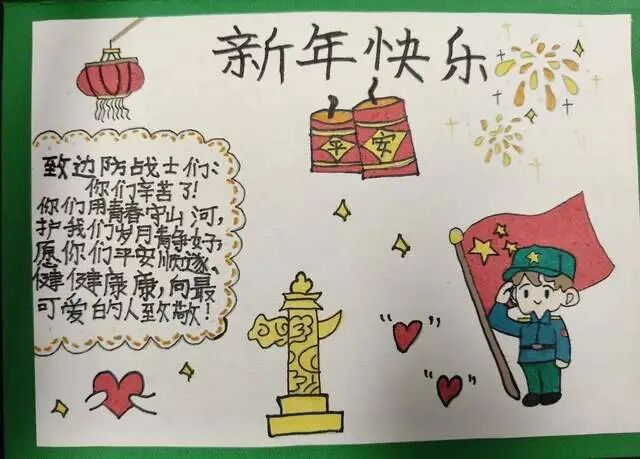 新年快乐
平安
致边防战士们:
你们辛苦了!
你们用青春守山河,
护我们岁月静好,
愿你们平安顺遂、
健健康康,向最
可爱的人致敬!